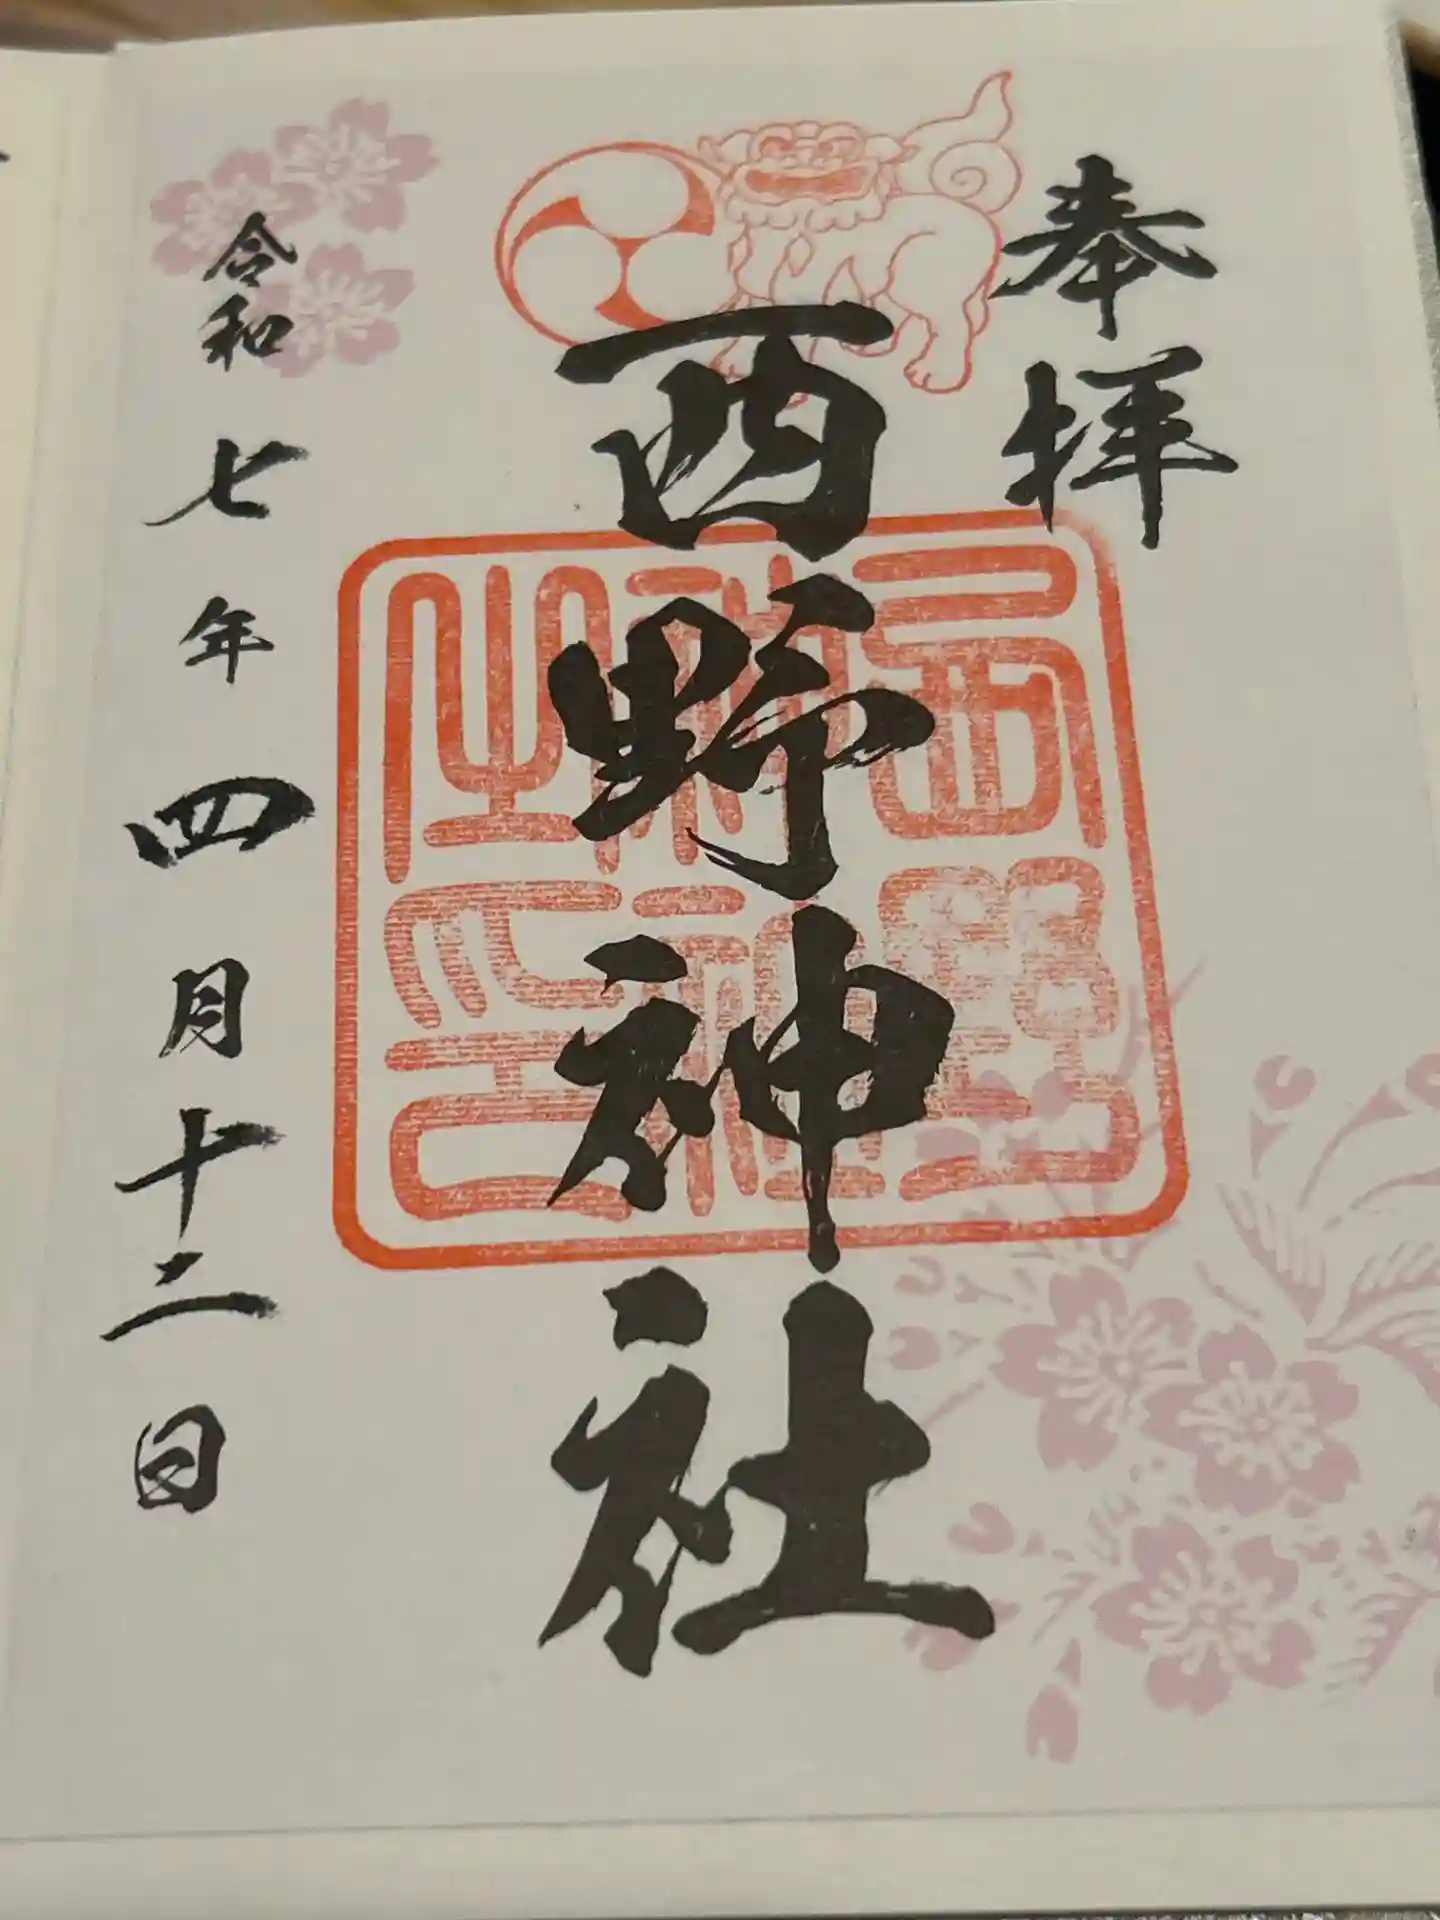 奉拝
西野神社
西野神社之印
令和七年四月十二日